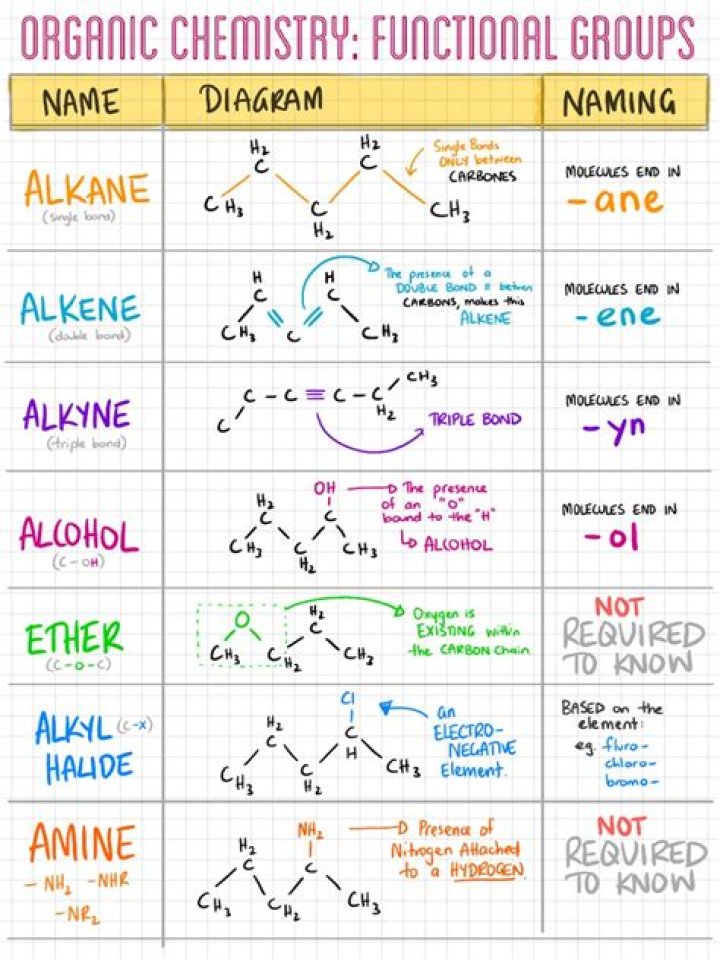 ORGANIC CHEMISTRY: FUNCTIONAL GROUPS
NAME DIAGRAM NAMING
ALKANE
(single bond)
H₂ H₂
C C
CH₃ C CH₃
H₂
Single Bonds
ONLY between
CARBONES
MOLECULES END IN
-ane
ALKENE
(double bond)
H H
C C
CH₃ C CH₃
The presence of a
DOUBLE BOND = between
CARBONS, makes this
ALKENE
MOLECULES END IN
-ene
ALKYNE
(triple bond)
C - C ≡ C - C CH₃
C H₂
TRIPLE BOND
MOLECULES END IN
-yn
ALCOHOL
(C-OH)
OH
H₂
C C
CH₃ C CH₃
H₂
The presence
of an "O"
bound to the "H"
ALCOHOL
MOLECULES END IN
-ol
ETHER
(C-O-C)
O H₂
C
CH₃ CH₂ CH₃
Oxygen is
EXISTING within
the CARBON Chain
NOT
REQUIRED
TO KNOW
ALKYL (C-X)
HALIDE
Cl
H₂
C C
H
CH₃ C CH₃
H₂
an
ELECTRO-
NEGATIVE
Element.
BASED on the
element:
eg. fluro-
chloro-
bromo-
AMINE
- NH₂ -NHR
-NR₂
NH₂
H₂
C C
CH₃ CH₂ CH₃
Presence of
Nitrogen Attached
to a HYDROGEN
NOT
REQUIRED
TO KNOW